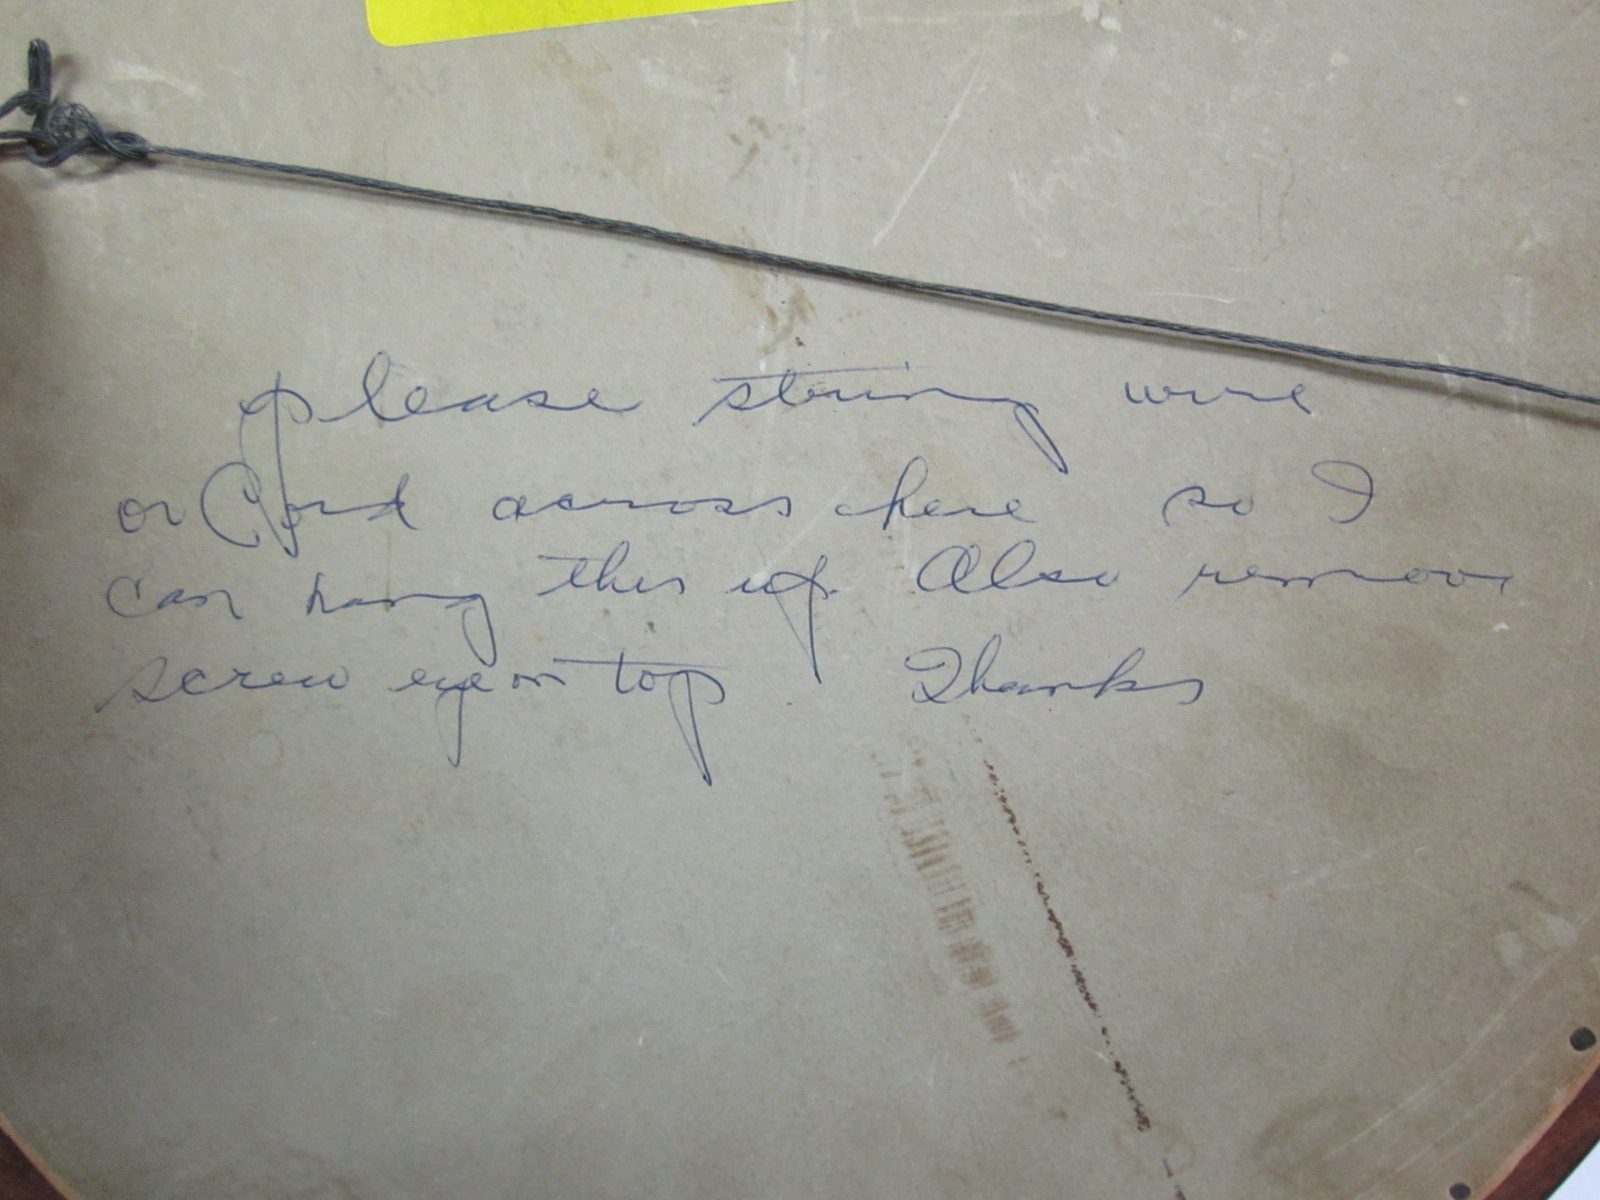 please string wire
or Cord across here so I
can hang this up. Also remove
screw eye on top. Thanks